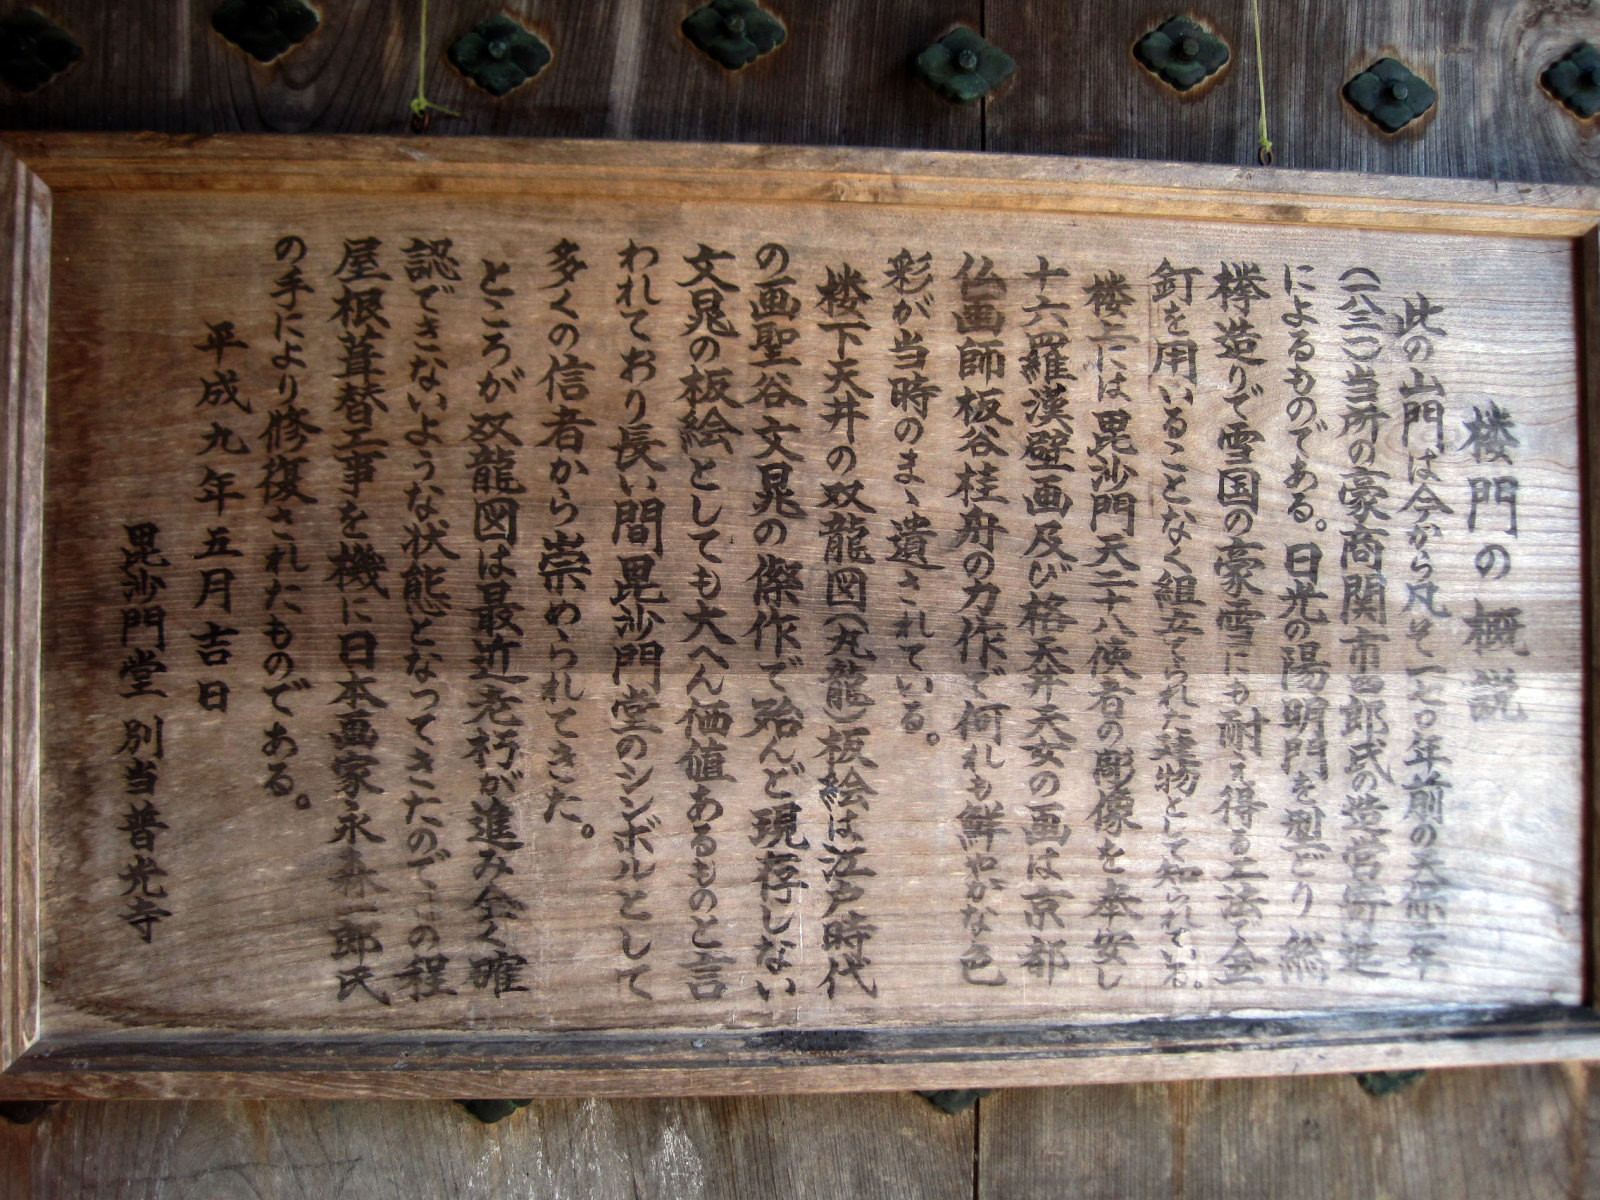 楼門の概説
此の山門は今から凡そ一七〇年前の天保二年
(一八三一)当所の豪商関市四郎氏の造営寄進
によるものである。日光の陽明門を型どり総
欅造りで雪国の豪雪にも耐え得る工法で金
釘を用いることなく組立てられた建物として知られている。
楼上には毘沙門天二十八使者の彫像を奉安し
十六羅漢壁画及び格天井天女の画は京都
仏画師板谷桂舟の力作で何れも鮮やかな色
彩が当時のまゝ遺されている。
楼下天井の双龍図(丸龍)板絵は江戸時代
の画聖谷文晁の傑作で殆んど現存しない
文晁の板絵としても大へん価値あるものと言
われており長い間毘沙門堂のシンボルとして
多くの信者から崇められてきた。
ところが双龍図は最近老朽が進み全く確
認できないような状態となってきたのでこの程
屋根葺替工事を機に日本画家永森一郎氏
の手により修復されたものである。
平成九年五月吉日
毘沙門堂 別当普光寺